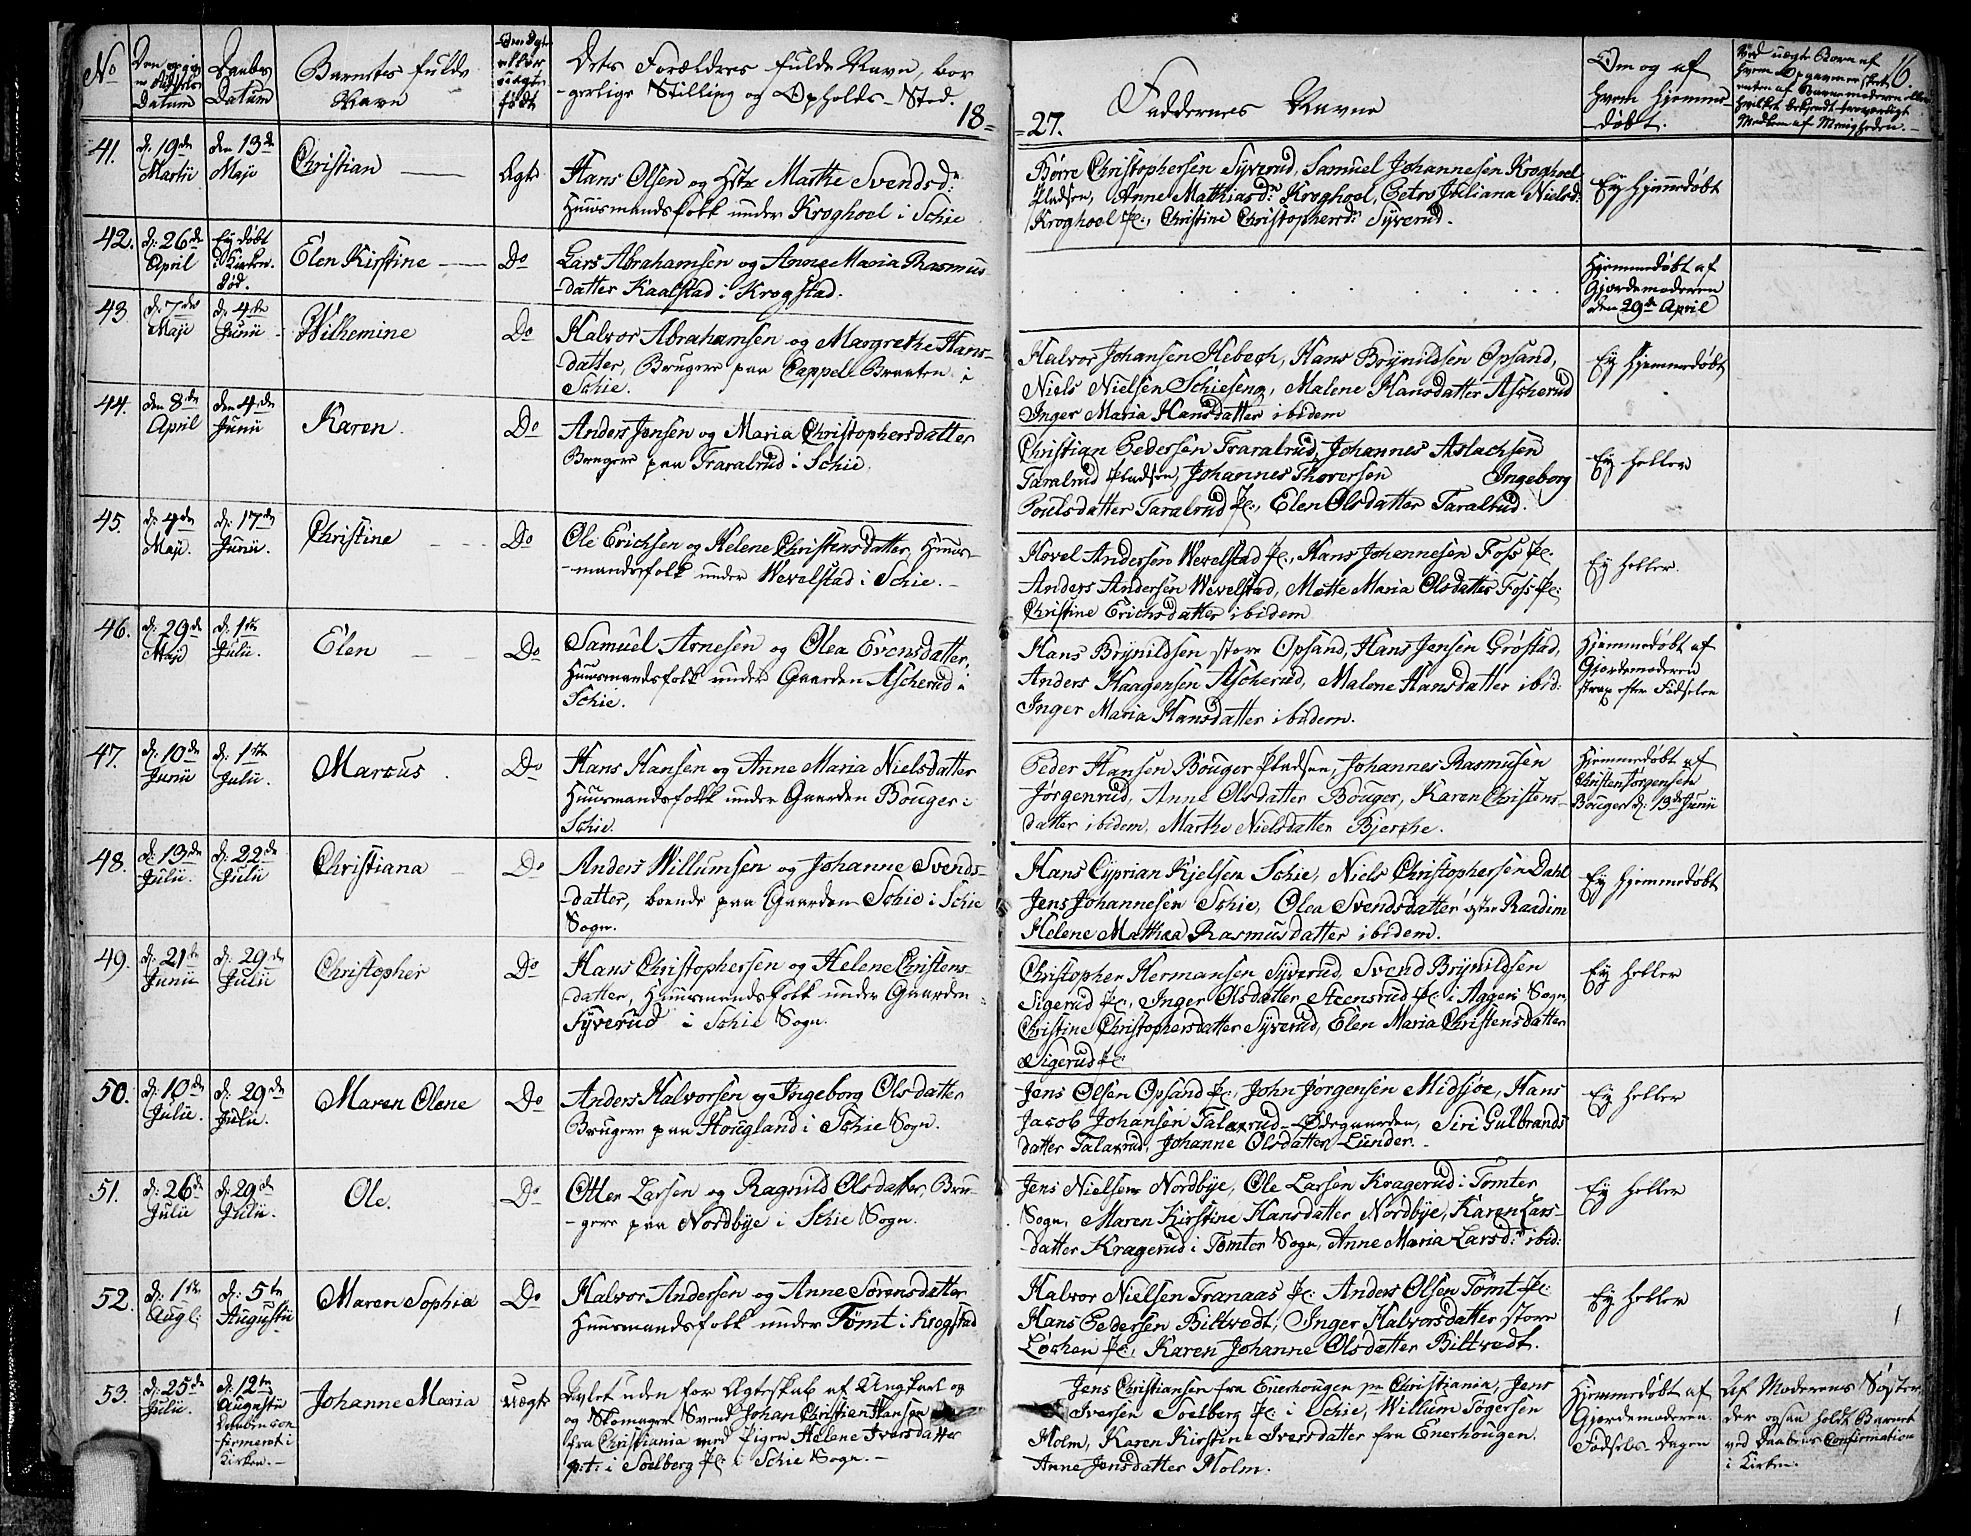 No
Den opgivne Fødsels Datum
Daabs Datum
Barnets fulde Navn
Om Ægte eller uægte født
Dets Forældres fulde Navn, bor-
-gerlige Stilling og Opholds-Sted.
18-
-27.
Faddernes Navne
Om og af
hvem hjemme-
døbt.
16
41.
d: 19de
Martii
den 13de
Maji
Christian
Ægte
Hans Olsen og Hst: Marthe Svendsdr:
Huusmandsfolk under Kroghoel i Schie
Børre Christophersen Syverud, Samuel Johannesen Kroghoel
Pladsen, Anne Mathiasdr: Kroghoel, Petro Juliana Nielsd:
Kroghoel Pl:, Christine Christophersdr: Syverud.
Ey Hjemmedøbt
42.
d: 26de
April
Ey døbt
i Kirken.
død.
Elen Kirstine
Do
Lars Abrahamsen og Anne Maria Rasmus
datter Kaalstad i Krogstad.
Hjemmedøbt af
Gjordemoderen
den 29de April
43
d: 7de
Maji
d: 4de
Junii
Wilhemine
Do
Halvor Abrahamsen og Margrethe Hans-
-datter, Brugere paa Cappel Braaten i
Schie.
Halvor Johansen Hebegh, Hans Brynildsen Opsand,
Niels Nielsen Schieseng, Malene Hansdatter Ascherud
Inger Maria Hansdatter ibidem
Ey Hjemmedøbt
44.
den 8de
April
den 4de
Junii
Karen.
Do
Anders Jensen og Maria Christophersdatter
Brugere paa Traralrud i Schie.
Christian Pedersen Traralrud, Johannes Aslachsen
Taralrud Pladsen, Johannes Thoversen Ingeborg
Poulsdatter Taralrud Pl:, Elen Olsdatter Taralrud.
Ey heller
45.
d: 4de
Maji.
d: 17de
Junii.
Christine
Do
Ole Erichsen og Helene Christensdatter, Huus-
-mandsfolk under Wevelstad i Schie.
Hovel Andersen Wevelstad Pl:, Hans Johannesen Foss Pl:
Anders Andersen Wevelstad, Mette Maria Olsdatter Foss Pl:
Christine Erichsdatter ibidem
Ey heller.
46.
d: 29de
Maji
d: 1ste
Julii.
Elen
Do
Samuel Arnesen og Olea Evensdatter,
Huusmandsfolk under Gaarden Ascherud i
Schie.
Hans Brynildsen store Opsand, Hans Jensen Grøstad,
Anders Haagensen Ascherud, Malene Hansdatter ibid:
Inger Maria Hansdatter ibidem.
Hjemmedøbt af
Gjordemoderen
strax efter Fødselen
47.
d: 10de
Junii
d: 1ste
Julii.
Marcus
Do
Hans Hansen og Anne Maria Nielsdatter
Huusmandsfolk under Gaarden Bouger i
Schie.
Peder Hansen Bouger Pladsen, Johannes Rasmusen
Jørgenrud, Anne Olsdatter Bouger, Karen Christens-
datter ibidem, Marthe Nielsdatter Bjerche.
Hjemmedøbt af
Christen Jørgensen
Bouger d: 19de Junii
48.
d: 13de
Julii.
d: 22de
Julii
Christiana
Do
Anders Willumsen og Johanne Svends-
-datter, boende paa Gaarden Schie i Schie
Sogn.
Hans Cyprian Kjelsen Schie, Niels Christophersen Dahl
Jens Johannesen Schie, Olea Svendsdatter øster Raadim
Helene Mathea Rasmusdatter ibidem.
Ey Hjemmedøbt
49.
d: 21te
Junii
d: 29de
Julii
Christopher
Do
Hans Christophersen og Helene Christens-
datter, Huusmandsfolk under Gaarden
Syverud i Schie Sogn.
Christopher Hermansen Syverud, Svend Brynildsen
Sigerud Pl:, Inger Olsdatter Steensrud Pl: i Aggers Sogn,
Christine Christophersdatter Syverud, Elen Maria Christensdatter
Sigerud Pl:
Ey heller
50.
d: 10de
Julii.
d: 29de
Julii.
Maren Olene
Do
Anders Halvorsen og Ingeborg Olsdatter
Brugere paa Hougland i Schie Sogn.
Jens Olsen Opsand Pl:, John Jørgensen Midsjøe, Hans
Jacob Johansen Talaxrud-Ødegaarden, Siri Gulbrands
datter Talaxrud, Johanne Olsdatter Lunder.
Ey heller
51.
d: 26de
Julii
d: 29de
Julii.
Ole.
Do
Otter Larsen og Ragnild Olsdatter, Bru-
-gere paa Nordbye i Schie Sogn.
Jens Nielsen Nordbye, Ole Larsen Kragerud i Tomter
Sogn, Maren Kirstine Hansdatter Nordbye, Karen Lars-
-datter Kragerud i Tomter Sogn, Anne Maria Larsd: ibid:
Ey heller
52.
d: 1ste
Aug:
d: 5te
Augustii
Maren Sophia
Do
Halvor Andersen og Anne Sørensdatter
Huusmandsfolk under Tømt i Krogstad
Halvor Nielsen Tranaas Pl: Anders Olsen Tømt Pl:
Hans Pedersen Biltvedt, Inger Halvorsdatter store
Løchen Pl:, Karen Johanne Olsdatter Biltvedt.
Ey heller
53.
d: 25de
Julii.
d: 12te
Augustii
Daaben con-
-firmeret i
Kirken.
Johanne Maria
uægte
Avlet uden for Ægteskab af Ungkarl og
og Skomager Svend Johan Christian Hansen
fra Christiania med Pigen Helene Iversdatter
p:t: i Soelberg Pl: i Schie Sogn.
Jens Christiansen fra Enerhougen pr Christiania, Jens
Iversen Soelberg Pl: i Schie, Willum Segersen
Holm, Karen Kirstine Iversdatter fra Enerhougen.
Anne Jensdatter Holm.
Hjemmedøbt af
Gjordemoderen.
Fødsels-Dagen
Af Moderens Søster
der ogsaa holdt Barnet
ved Daabens Confirmation
i Kirken.